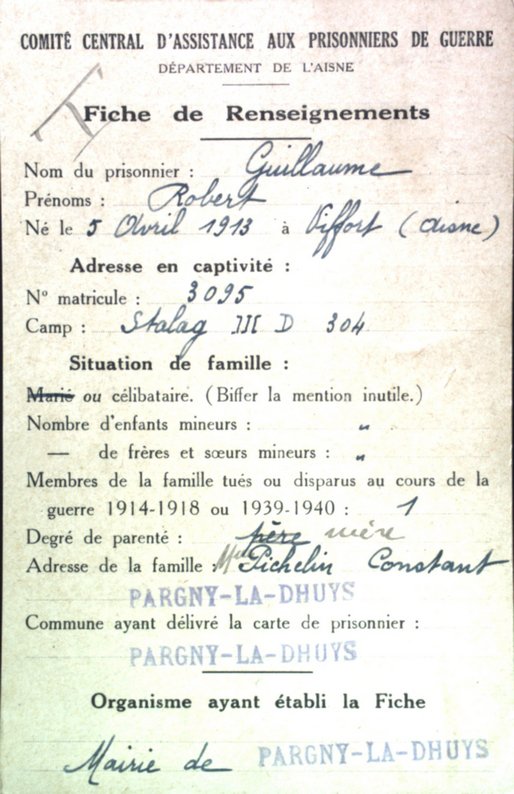 COMITÉ CENTRAL D'ASSISTANCE AUX PRISONNIERS DE GUERRE
DÉPARTEMENT DE L'AISNE
Fiche de Renseignements
Nom du prisonnier : Guillaume
Prénoms : Robert
Né le 5 Avril 1913 à Viffort (Aisne)
Adresse en captivité :
N° matricule : 3095
Camp : Stalag III D 304
Situation de famille :
Marié ou célibataire. (Biffer la mention inutile.)
Nombre d'enfants mineurs : "
— de frères et sœurs mineurs : "
Membres de la famille tués ou disparus au cours de la
guerre 1914-1918 ou 1939-1940 : 1
Degré de parenté : père mère
Adresse de la famille : Pichelin Constant
PARGNY-LA-DHUYS
Commune ayant délivré la carte de prisonnier :
PARGNY-LA-DHUYS
Organisme ayant établi la Fiche
Mairie de PARGNY-LA-DHUYS